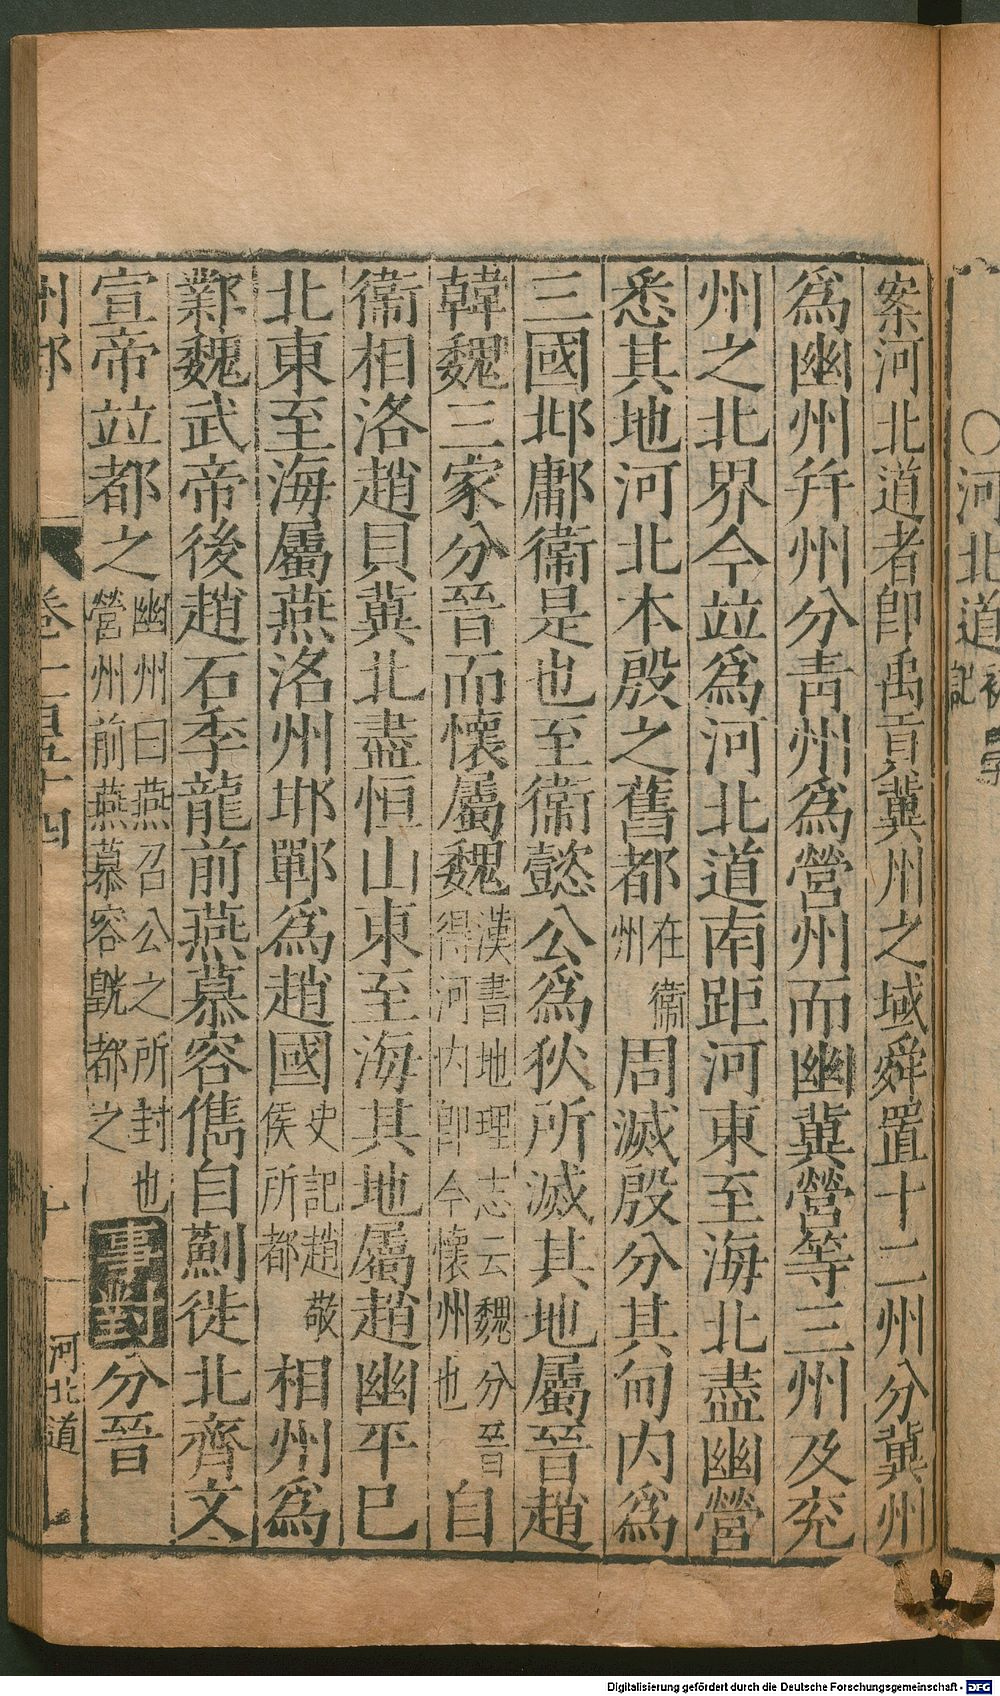 ○河北道
案河北道者卽禹貢冀州之域舜置十二州分冀州
爲幽州幷州分靑州爲營州而幽冀營等三州及兖
州之北界今竝爲河北道南距河東至海北盡幽營
悉其地河北本殷之舊都在衞州周滅殷分其甸内爲
三國邶鄘衞是也至衞懿公爲狄所滅其地屬晉趙
韓魏三家分晉而懷屬魏漢書地理志云魏分晉得河内卽今懷州也自
衞相洛趙貝冀北盡恒山東至海其地屬趙幽平巳
北東至海屬燕洺州邯鄲爲趙國史記趙敬侯所都相州爲
鄴魏武帝後趙石季龍前燕慕容儁自薊徙北齊文
宣帝竝都之幽州曰燕召公之所封也營州前燕慕容皝都之事對分晉
州郡
卷一百五十四
十
河北道
Digitalisierung gefördert durch die Deutsche Forschungsgemeinschaft - DFG